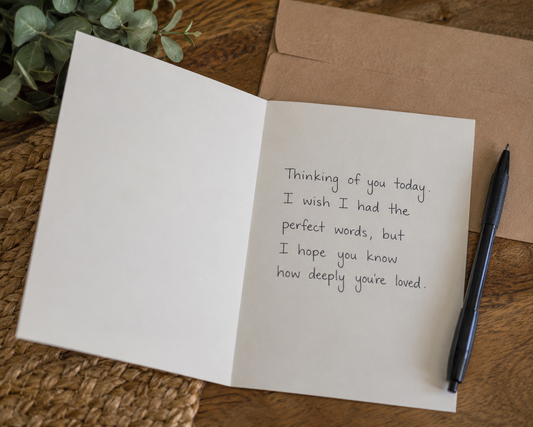 Thinking of you today.
I wish I had the
perfect words, but
I hope you know
how deeply you're loved.